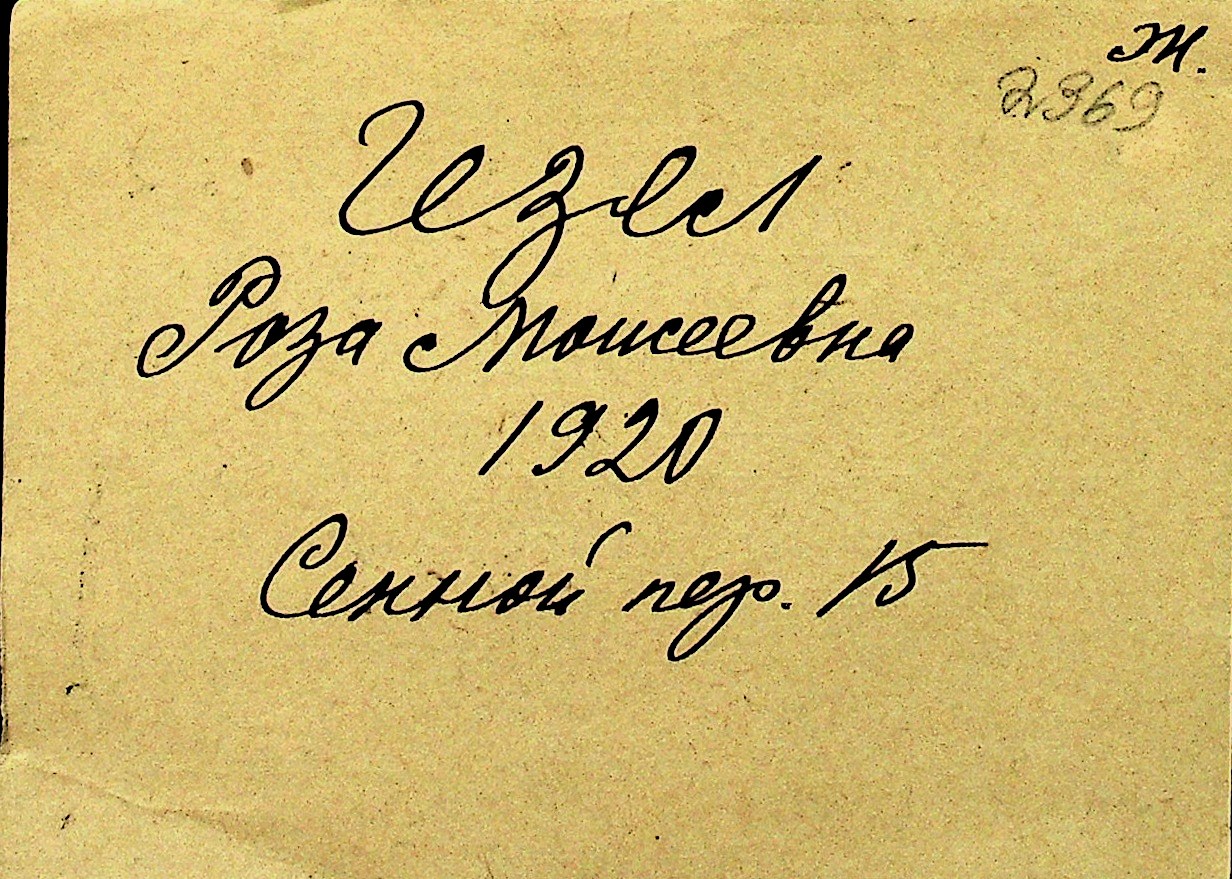 Ж.
2369
Роза Моисеевна
1920
Сенной пер. 15